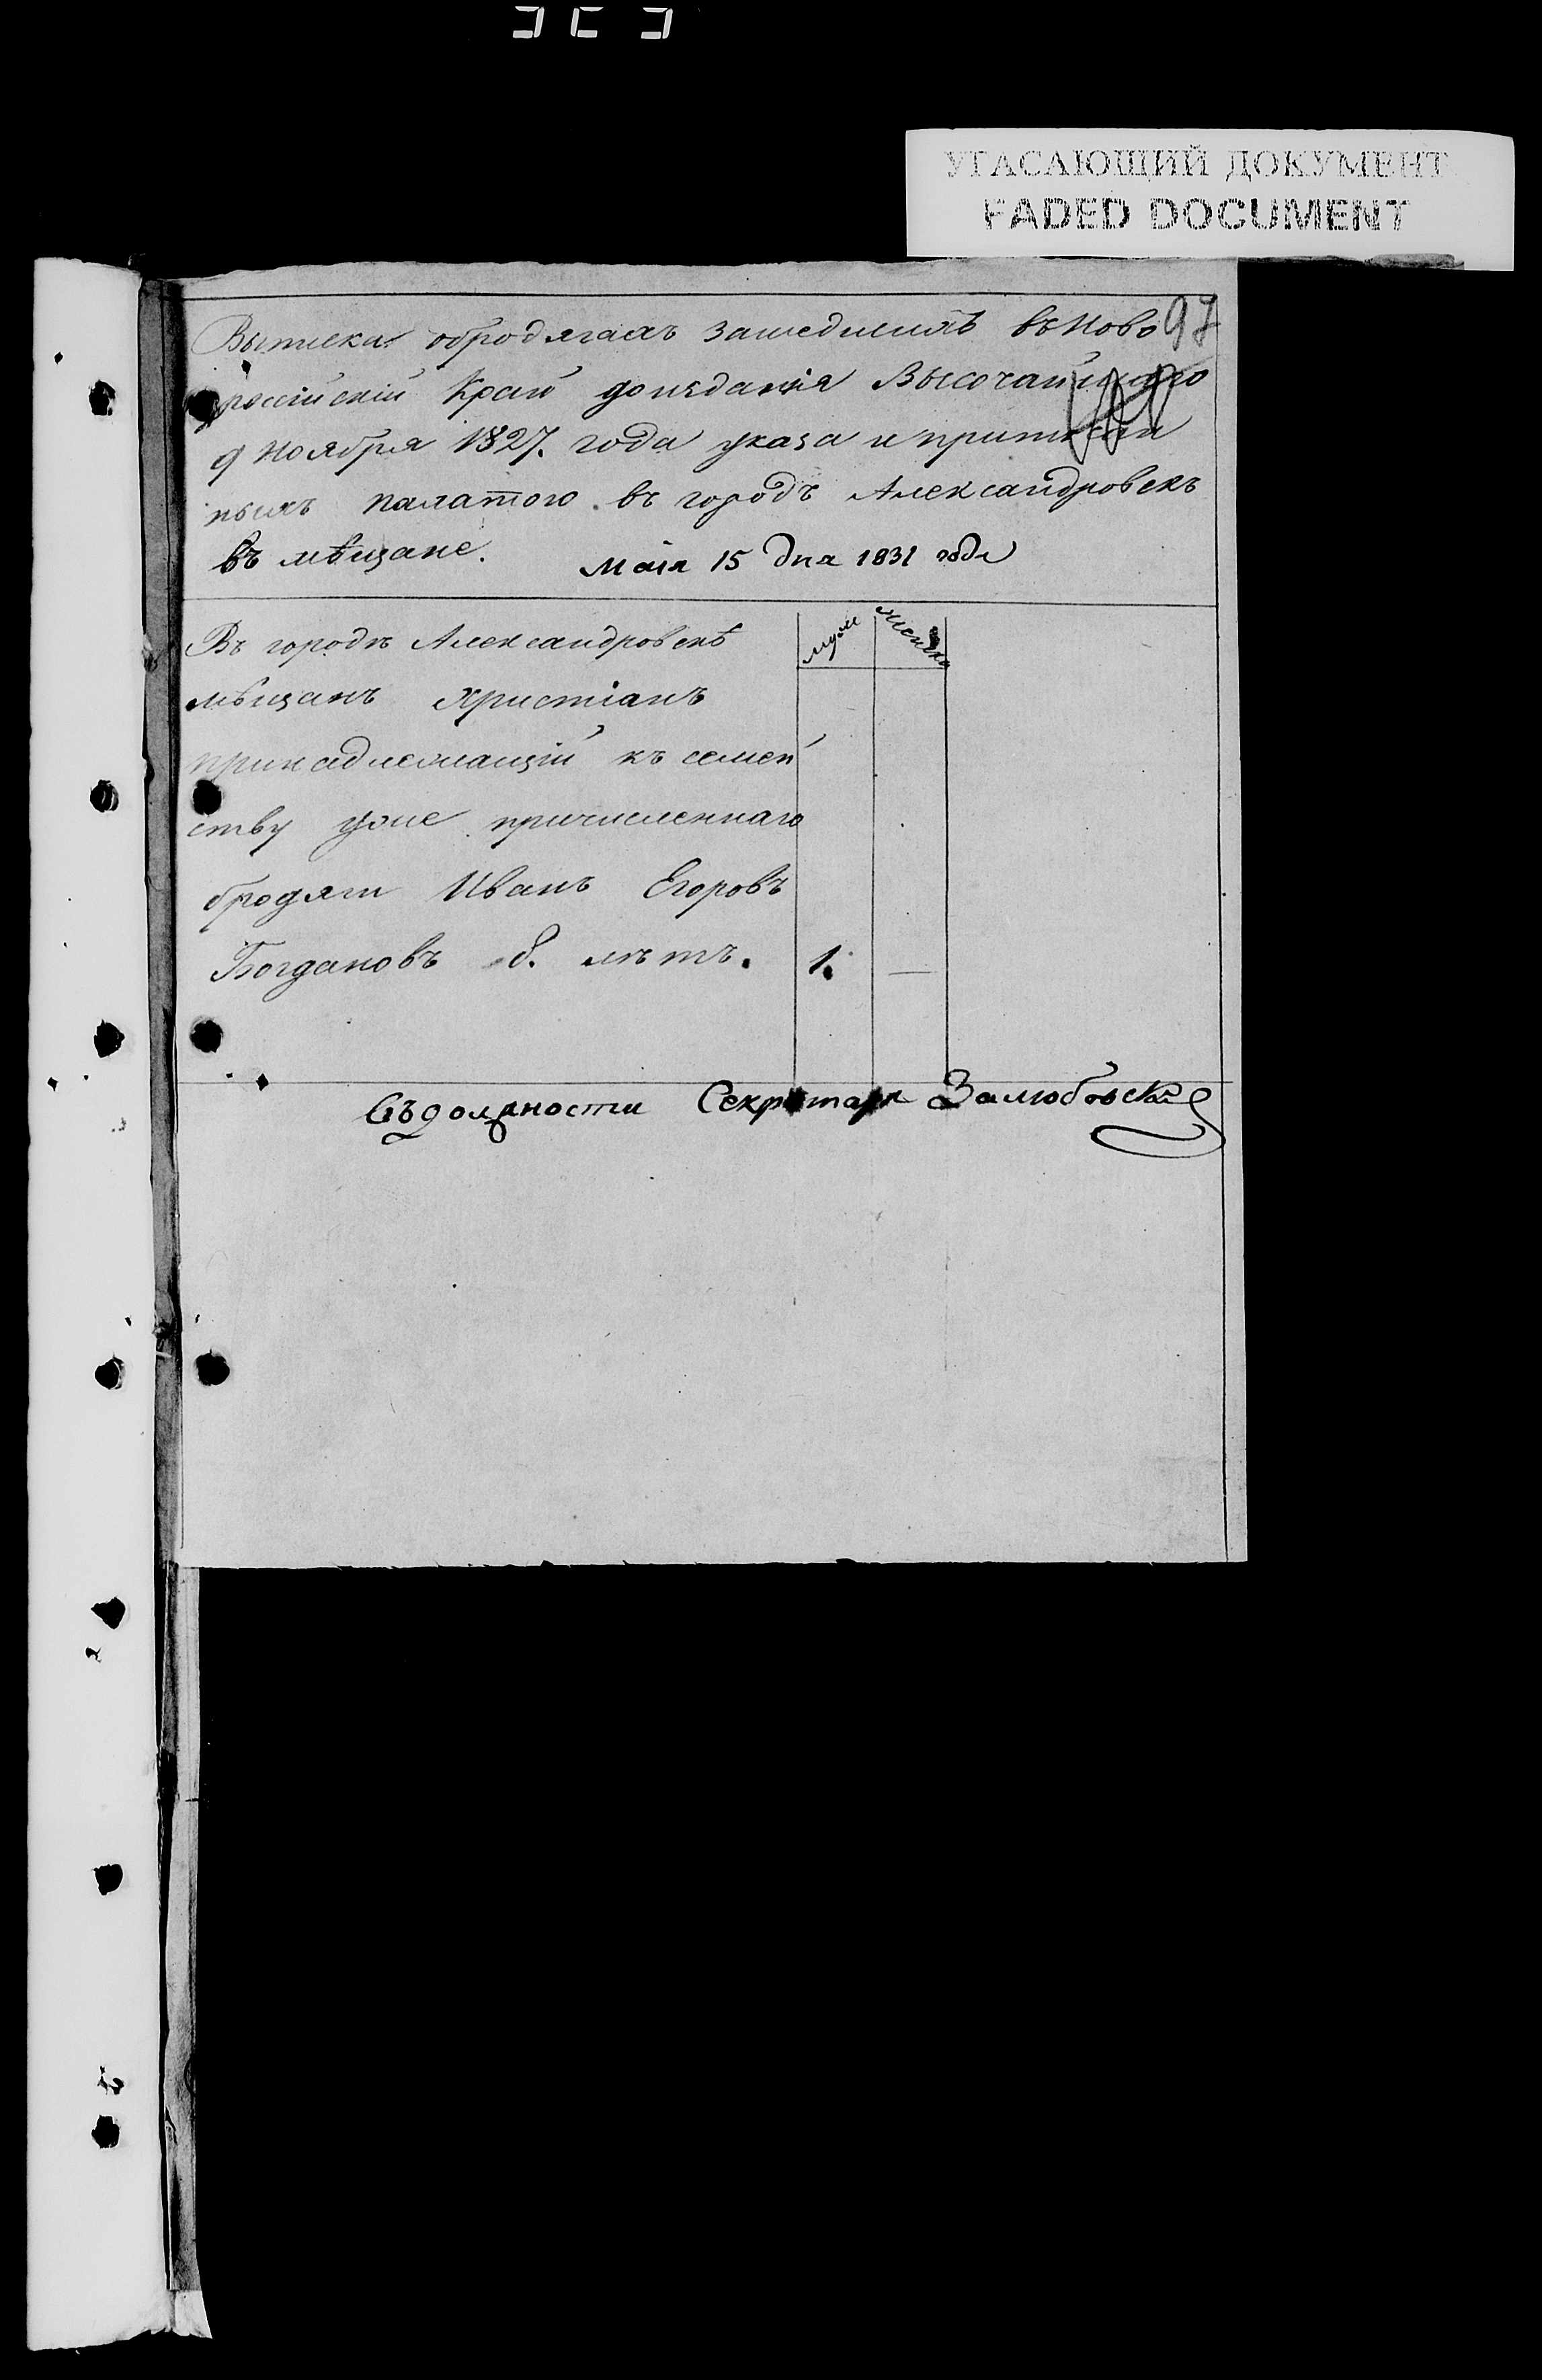 УГАСАЮЩИЙ ДОКУМЕНТ
FADED DOCUMENT
97
Выписка обродягахъ зашедшихъ въ Ново
россійскій Край доизданія Высочайшаго
9 Ноября 1827. года указа и приписан
ныхъ палатою въ городъ Александровскъ
въ мѣщане. Маія 15 дня 1831 года
муж женск
Въ городѣ Александровскѣ
мѣщанъ Христіанъ
принадлежащій къ семей
ству уже причисленнаго
бродяги Иванъ Егоровъ
Богдановъ 8. лѣтъ. 1. —
Въ должности Секретаря Залюбовскій